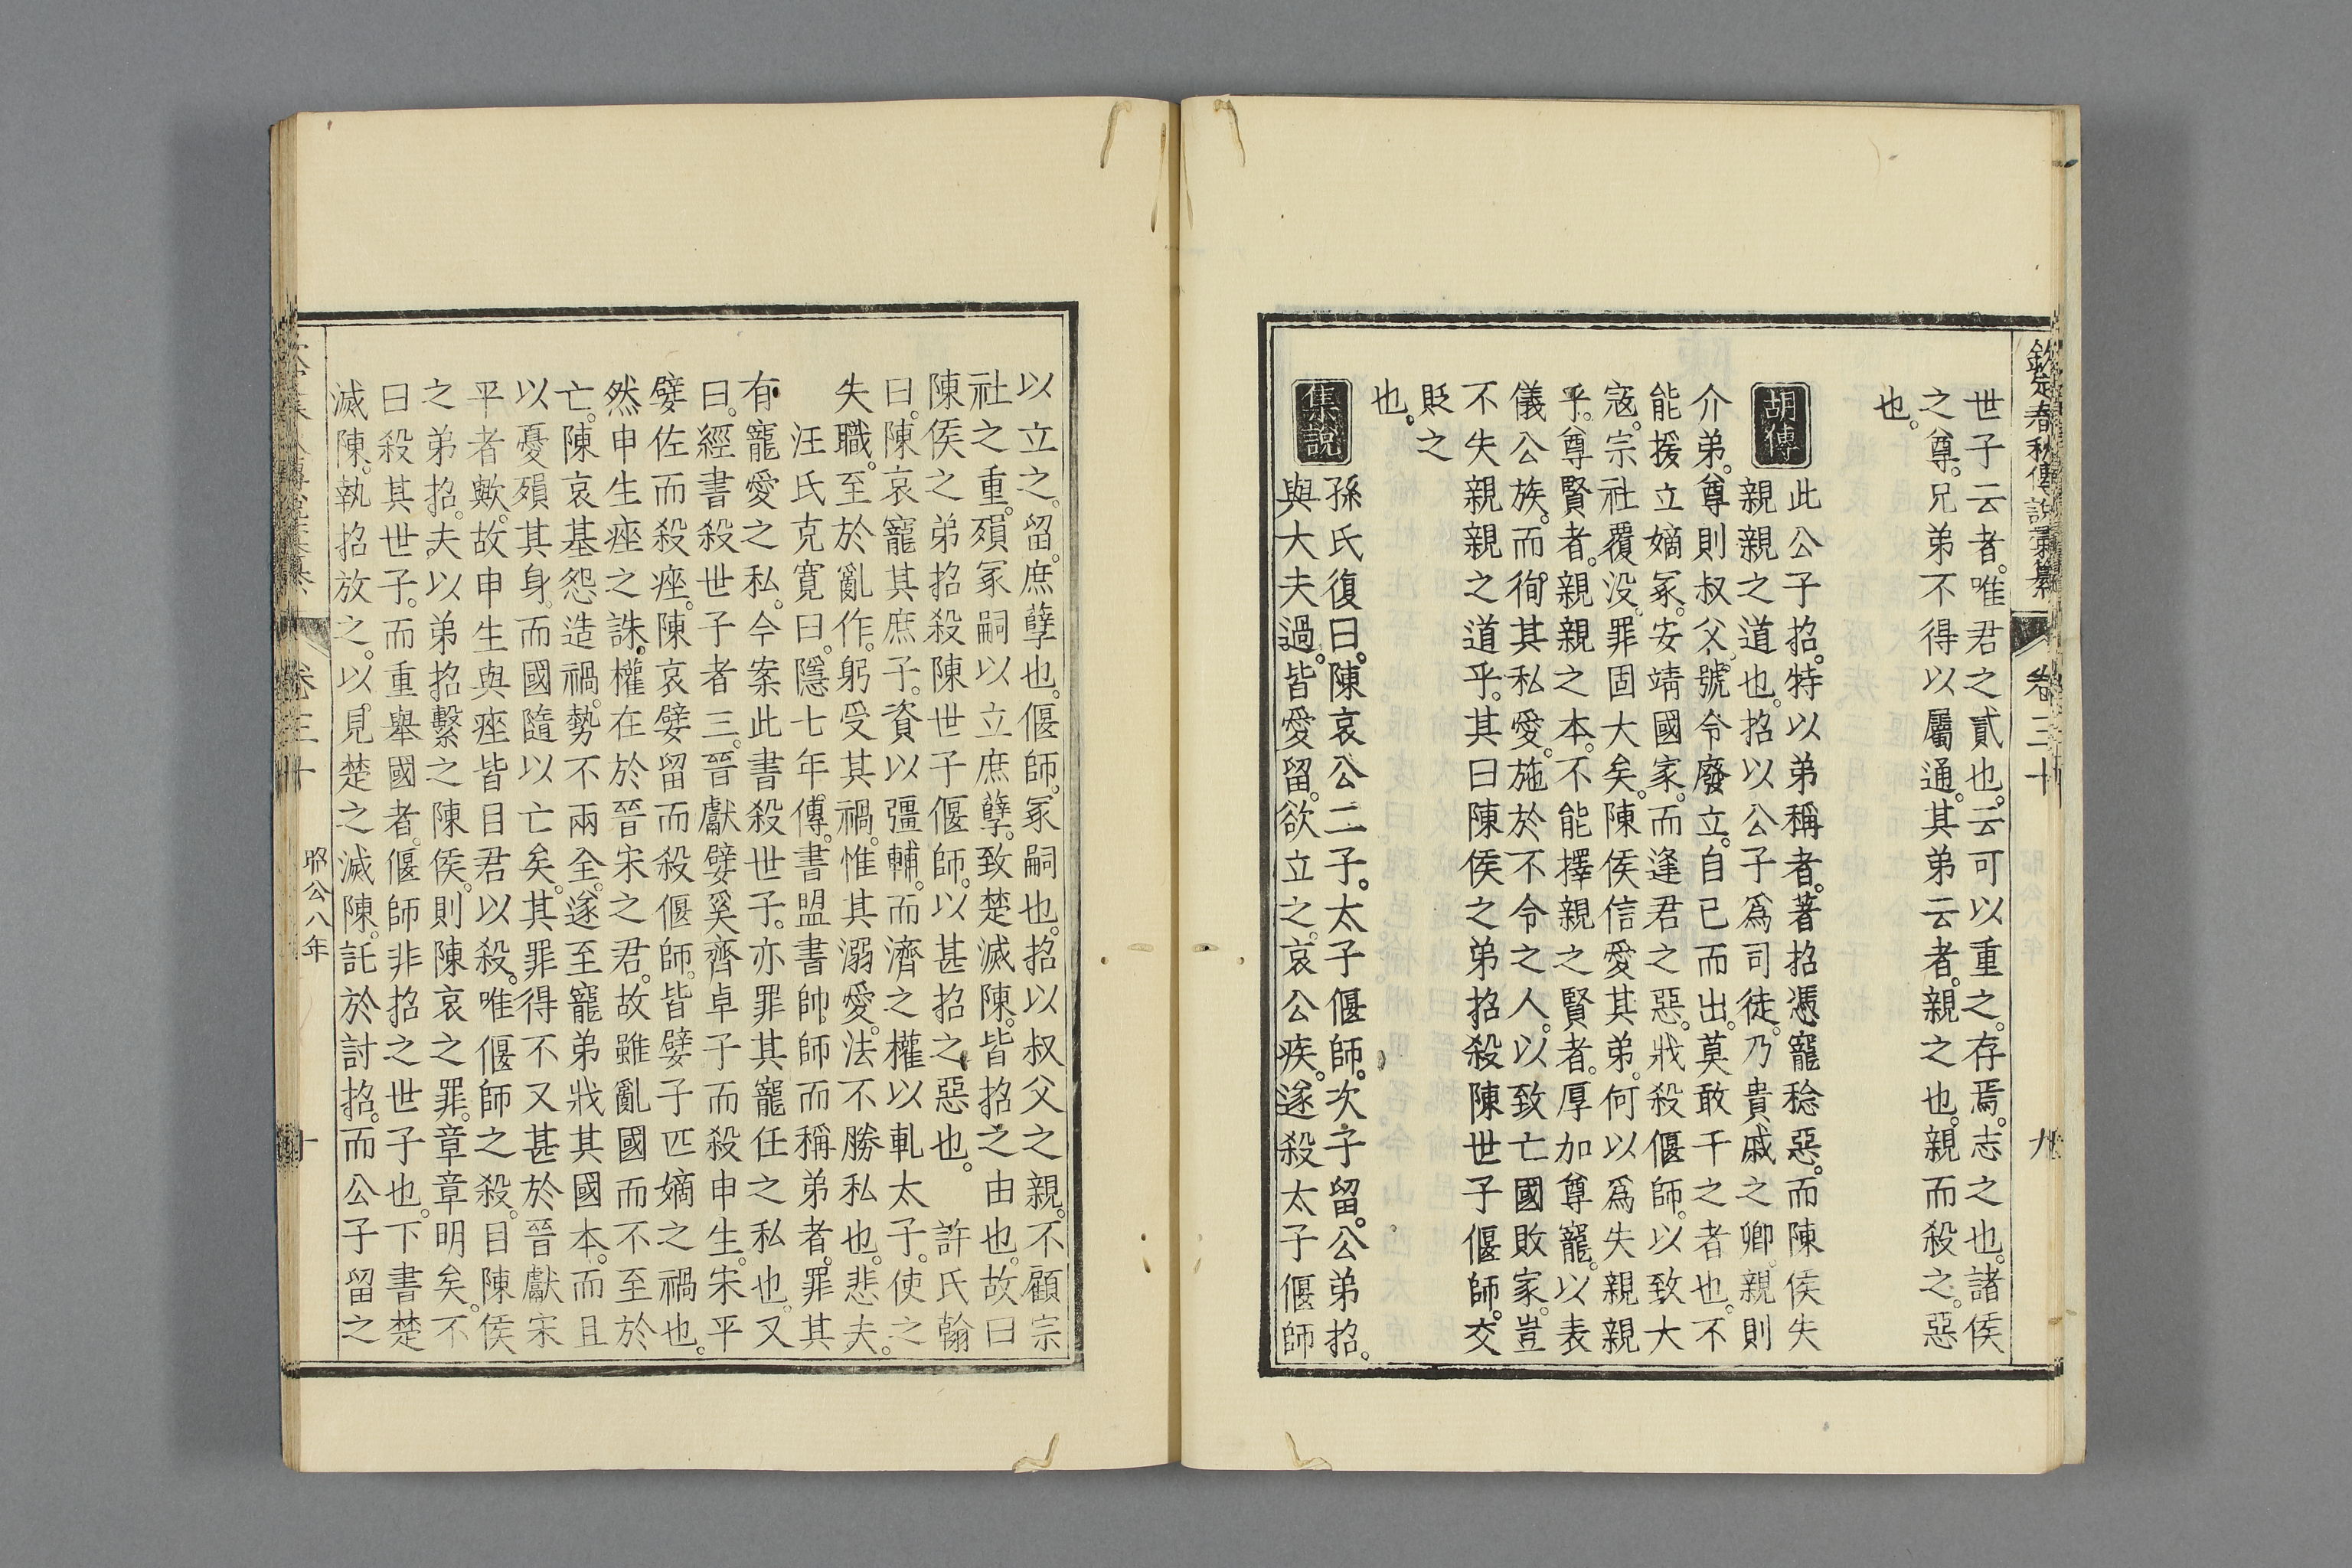 欽定春秋傳說彙纂 卷三十 九
世子云者。唯君之貳也。云可以重之。存焉。志之也。諸侯
之尊。兄弟不得以屬通。其弟云者。親之也。親而殺之。惡
也。
胡傳
此公子招。特以弟稱者。著招憑寵稔惡。而陳侯失
親親之道也。招以公子爲司徒。乃貴戚之卿。親則
介弟。尊則叔父。號令廢立。自已而出。莫敢干之者也。不
能援立嫡冢。安靖國家。而逢君之惡。戕殺偃師。以致大
寇。宗社覆没。罪固大矣。陳侯信愛其弟。何以爲失親親
乎。尊賢者。親親之本。不能擇親之賢者。厚加尊寵。以表
儀公族。而徇其私愛。施於不令之人。以致亡國敗家。豈
不失親親之道乎。其曰陳侯之弟招殺陳世子偃師。交
貶之
也。
集說
孫氏復曰。陳哀公二子。太子偃師。次子留。公弟招。
與大夫過。皆愛留。欲立之。哀公疾。遂殺太子偃師
以立之。留。庶孽也。偃師。冢嗣也。招以叔父之親。不顧宗
社之重。殞冢嗣以立庶孽。致楚滅陳。皆招之由也。故曰
陳侯之弟招殺陳世子偃師。以甚招之惡也。 許氏翰
曰。陳哀寵其庶子。資以彊輔。而濟之權以軋太子。使之
失職。至於亂作。躬受其禍。惟其溺愛。法不勝私也。悲夫。
汪氏克寬曰。隱七年。傳。書盟書帥師而稱弟者。罪其
有寵愛之私。今案此書殺世子。亦罪其寵任之私也。又
曰。經書殺世子者三。晉獻嬖奚齊卓子而殺申生。宋平
嬖佐而殺痤。陳哀嬖留而殺偃師。皆嬖子匹嫡之禍也。
然申生痤之誅。權在於晉宋之君。故雖亂國而不至於
亡。陳哀基怨造禍。勢不兩全。遂至寵弟戕其國本。而且
以憂殞其身。而國隨以亡矣。其罪得不又甚於晉獻宋
平者歟。故申生與痤皆目君以殺。唯偃師之殺。目陳侯
之弟招。夫以弟招繫之陳侯。則陳哀之罪。章章明矣。不
曰殺其世子。而重舉國者。偃師非招之世子也。下書楚
滅陳。執招放之。以見楚之滅陳。託於討招。而公子留之
卷三十 昭公八年 十